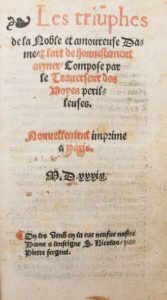 Les triũphes
de la Noble et amoureuse Da-
me/ Lart de honnestement
aymer/ Compose par
le Traverseur des
Voyes peril-
leuses.
Nouvellement imprime
a Paris.
M.D.xxxv.
On les Vend en la rue neufve nostre
Dame a lenseigne S. Nicolas/ par
Pierre sergent.